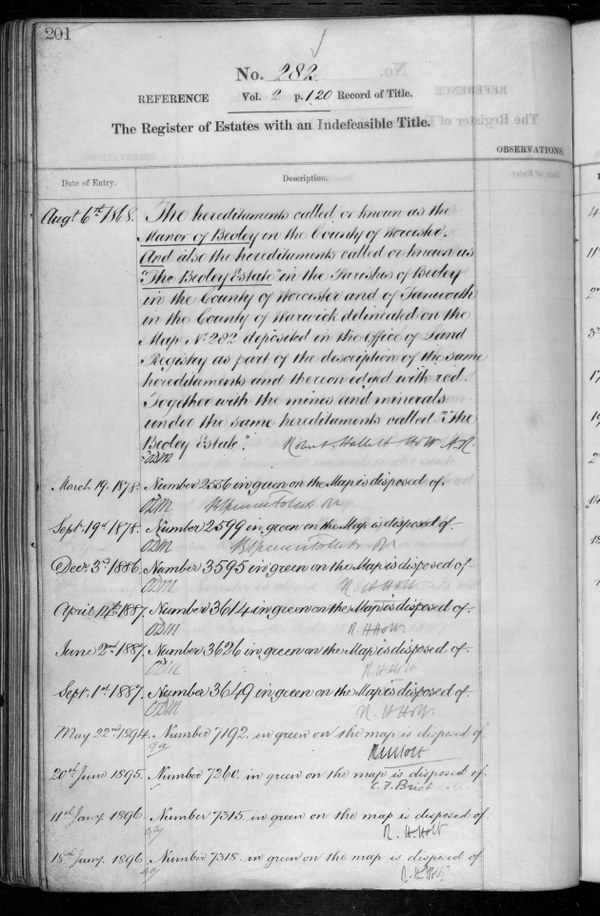 201
No. 282
REFERENCE Vol. 2 p. 120 Record of Title.
The Register of Estates with an Indefeasible Title.
OBSERVATIONS.
Date of Entry. Description.
Augt 6th 1868. The hereditaments called or known as the
Manor of Beoley in the County of Worcester.
And also the hereditaments called or known as
"The Beoley Estate" in the Parishes of Beoley
in the County of Worcester and of Tanworth
in the County of Warwick delineated on the
Map No. 282 deposited in the Office of Land
Registry as part of the description of the same
hereditaments and thereon edged with red.
Together with the mines and minerals
under the same hereditaments called "The
Beoley Estate".
March 19. 1878. Number 2556 in green on the Map is disposed of.
Sept. 19th 1878. Number 2599 in green on the Map is disposed of.
Decr. 3d 1886. Number 3595 in green on the Map is disposed of.
R H Holt
April 14th 1887. Number 3614 in green on the Map is disposed of.
R. H Holt.
June 2nd 1887. Number 3626 in green on the Map is disposed of.
R. H Holt
Sept. 1st 1887. Number 3649 in green on the Map is disposed of.
R. H Holt.
May 22nd 1894. Number 7192. in green on the map is disposed of.
R H Holt
20th June 1895. Number 7260. in green on the map is disposed of.
11th Jany. 1896. Number 7315. in green on the map is disposed of.
R. H. Holt
18th Jany. 1896. Number 7318. in green on the map is disposed of.
R. H. Holt.